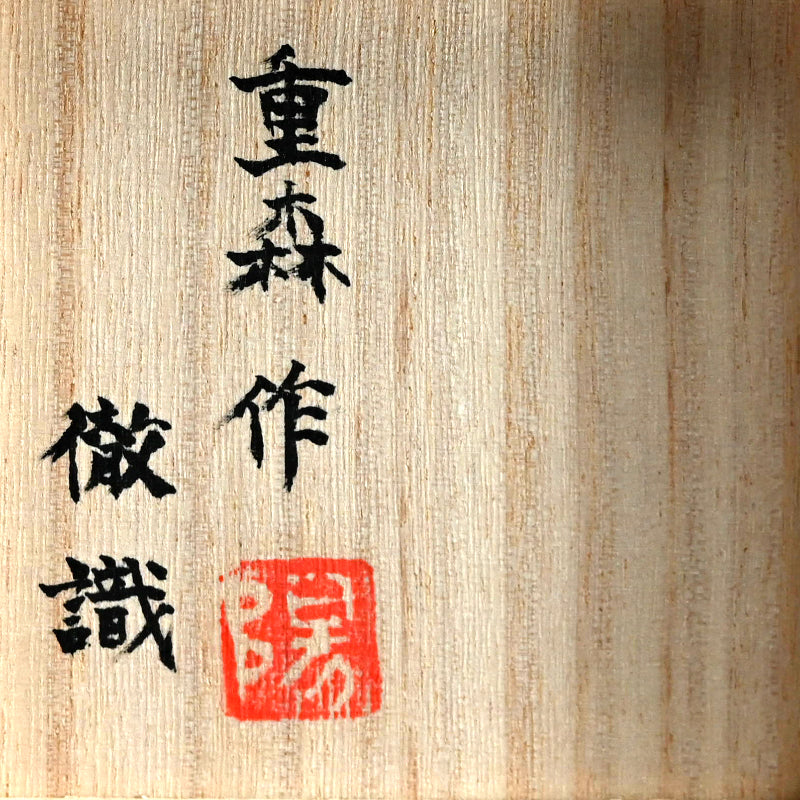 重森作
徹識
陽